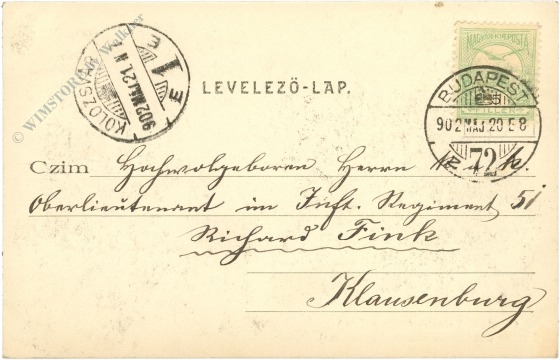 MAGYAR KIR. POSTA
FILLER
BUDAPEST
902 MÁJ. 20 E 8
72
KOLOZSVÁR
902 MÁJ. 21. N 7
E 1 E
© WIMSTORIA
LEVELEZŐ-LAP.
Czim Hochwolgeboren Herrn
Oberlieutenant im Inft. Regiment 51
Richard Fink
Klausenburg